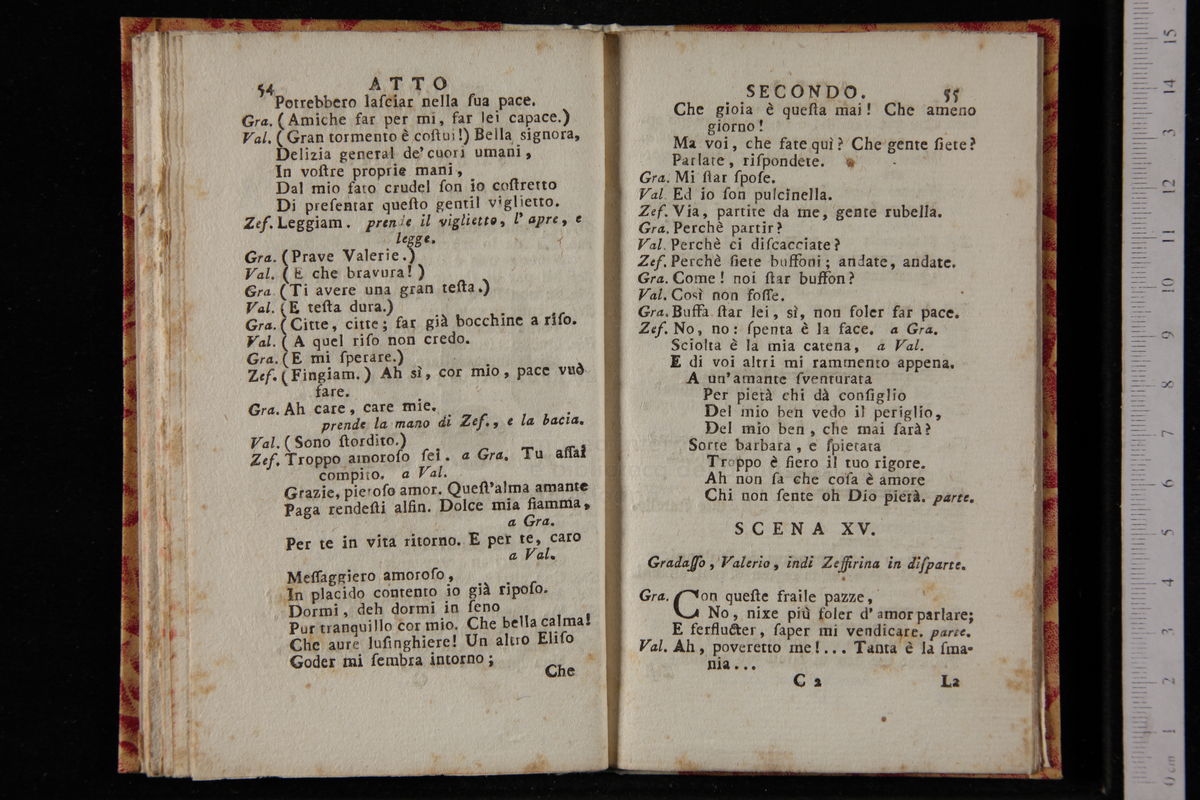 54 ATTO
Potrebbero laſciar nella ſua pace.
Gra. (Amiche far per mi, far lei capace.)
Val. (Gran tormento è coſtui!) Bella signora,
Delizia general de' cuori umani,
In voſtre proprie mani,
Dal mio fato crudel ſon io coſtretto
Di preſentar queſto gentil viglietto.
Zef. Leggiam. prende il viglietto, l'apre, e
legge.
Gra. (Prave Valerie.)
Val. (E che bravura!)
Gra. (Ti avere una gran teſta.)
Val. (E teſta dura.)
Gra. (Citte, citte; far già bocchine a riſo.
Val. (A quel riſo non credo.
Gra. (E mi ſperare.)
Zef. (Fingiam.) Ah sì, cor mio, pace vuò
fare.
Gra. Ah care, care mie.
prende la mano di Zef., e la bacia.
Val. (Sono ſtordito.)
Zef. Troppo amoroſo ſei. a Gra. Tu aſſai
compito. a Val.
Grazie, pietoſo amor. Queſt'alma amante
Paga rendeſti alfin. Dolce mia fiamma,
a Gra.
Per te in vita ritorno. E per te, caro
a Val.
Meſſaggiero amoroſo,
In placido contento io già ripoſo.
Dormi, deh dormi in ſeno
Pur tranquillo cor mio. Che bella calma!
Che aure luſinghiere! Un altro Eliſo
Goder mi ſembra intorno;
Che
SECONDO. 55
Che gioia è queſta mai! Che ameno
giorno!
Ma voi, che fate quì? Che gente ſiete?
Parlate, riſpondete.
Gra. Mi ſtar ſpoſe.
Val. Ed io ſon pulcinella.
Zef. Via, partite da me, gente rubella.
Gra. Perchè partir?
Val. Perchè ci diſcacciate?
Zef. Perchè ſiete buffoni; andate, andate.
Gra. Come! noi ſtar buffon?
Val. Così non foſſe.
Gra. Buffa ſtar lei, sì, non ſoler far pace.
Zef. No, no: ſpenta è la face. a Gra.
Sciolta è la mia catena, a Val.
E di voi altri mi rammento appena.
A un'amante ſventurata
Per pietà chi dà conſiglio
Del mio ben vedo il periglio,
Del mio ben, che mai ſarà?
Sorte barbara, e ſpietata
Troppo è fiero il tuo rigore.
Ah non ſa che coſa è amore
Chi non ſente oh Dio pietà. parte.
SCENA XV.
Gradaſſo, Valerio, indi Zeffirina in diſparte.
Gra. Con queſte fraile pazze,
No, nixe più ſoler d'amor parlare;
E ferflucter, ſaper mi vendicare. parte.
Val. Ah, poveretto me!... Tanta è la ſma-
nia...
C 2 La